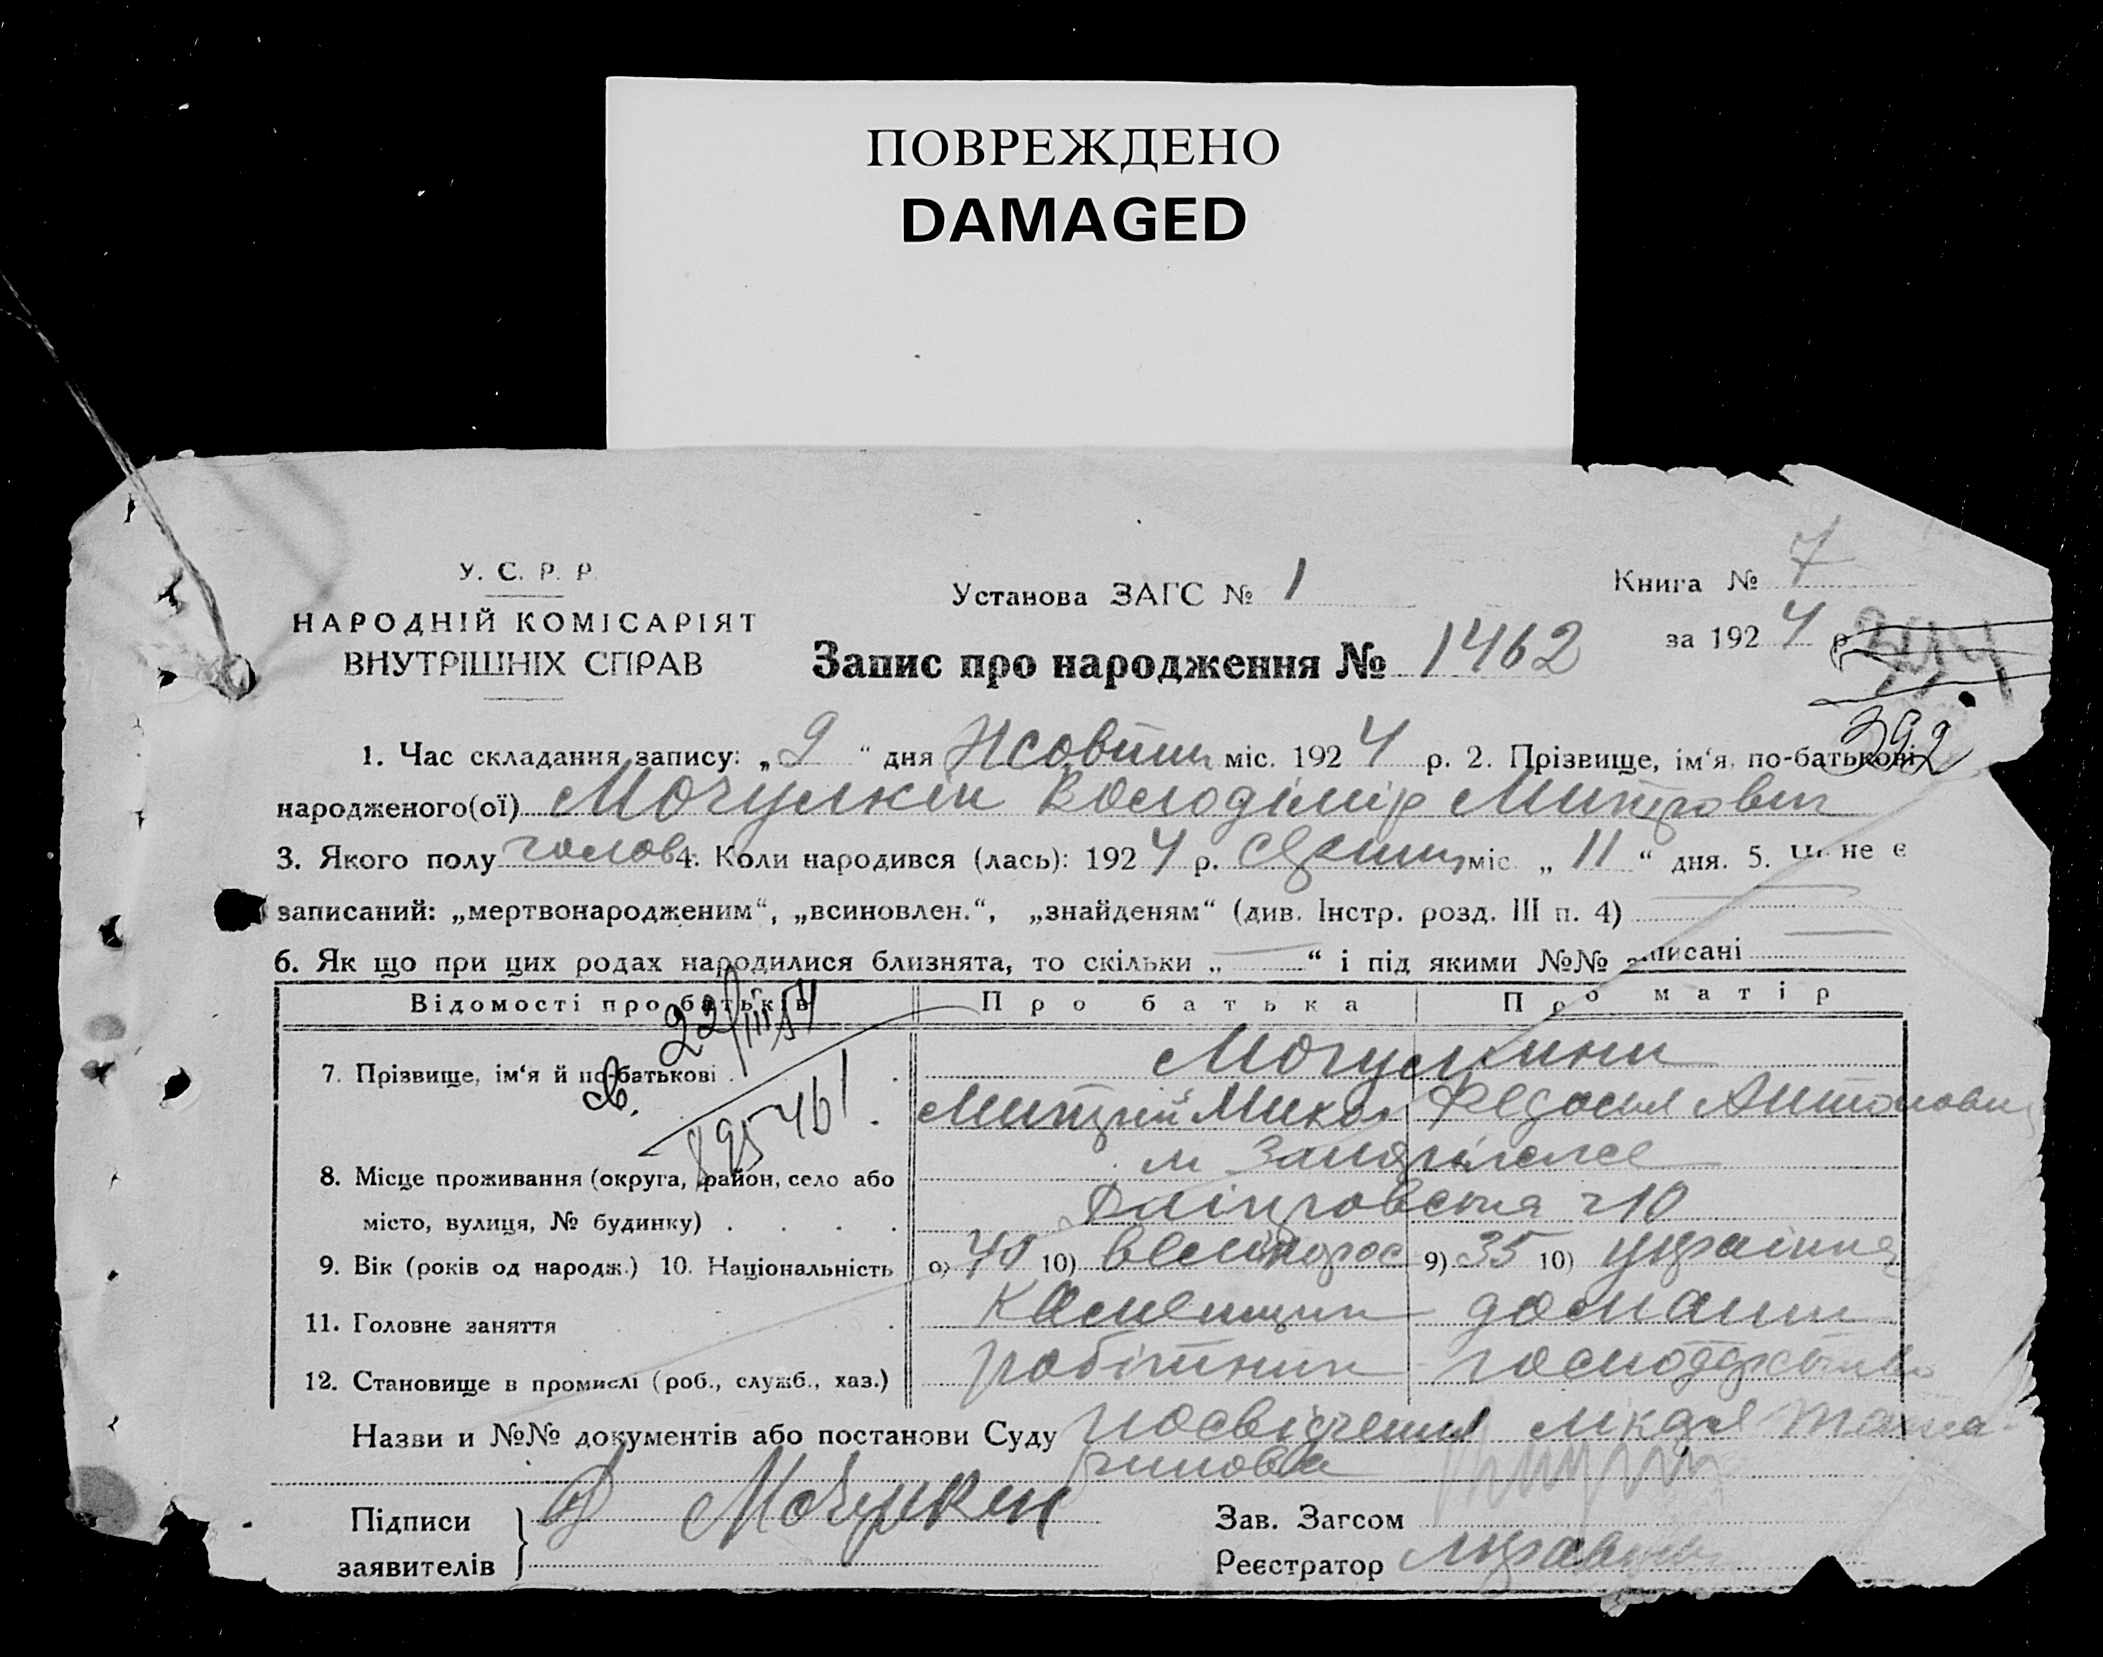 ПОВРЕЖДЕНО
DAMAGED
У. С. Р. Р.
НАРОДНІЙ КОМІСАРІЯТ
ВНУТРІШНІХ СПРАВ
Установа ЗАГС № 1
Запис про народження № 1462
Книга № 7
за 1924 р.
392
1. Час складання запису: „9“ дня Жовтня міс. 1924 р. 2. Прізвище, ім‘я, по-батькові
народженого(ої) Мочулкін Володімір Митров
3. Якого полу чолов 4. Коли народився (лась): 1924 р. серпня міс „11“ дня. 5. Ш не є
записаний: „мертвонародженим“, „всиновлен.“, „знайденям“ (див. Інстр. розд. III п. 4)
6. Як що при цих родах народилися близнята, то скільки „—“ і під якими №№ записані
Відомості про батьків Про батька Про матір
22/III 54
7. Прізвище, ім‘я й по-батькові
Мочулкини
Митрий Микол Федосия Антонови
895461
8. Місце проживання (округа, район, село або
місто, вулиця, № будинку)
м Запоріжже
Дніпровська 210
9. Вік (років од народж.) 10. Національність 9) 40 10) великорос 9) 35 10) українка
11. Головне заняття Каменщик домашн
12. Становище в промислі (роб., служб., хаз.) робітник господарство
Назви и №№ документів або постанови Суду посвідчення лікаря
Підписи
заявителів
Мочулкин
Зав. Загсом
Реєстратор